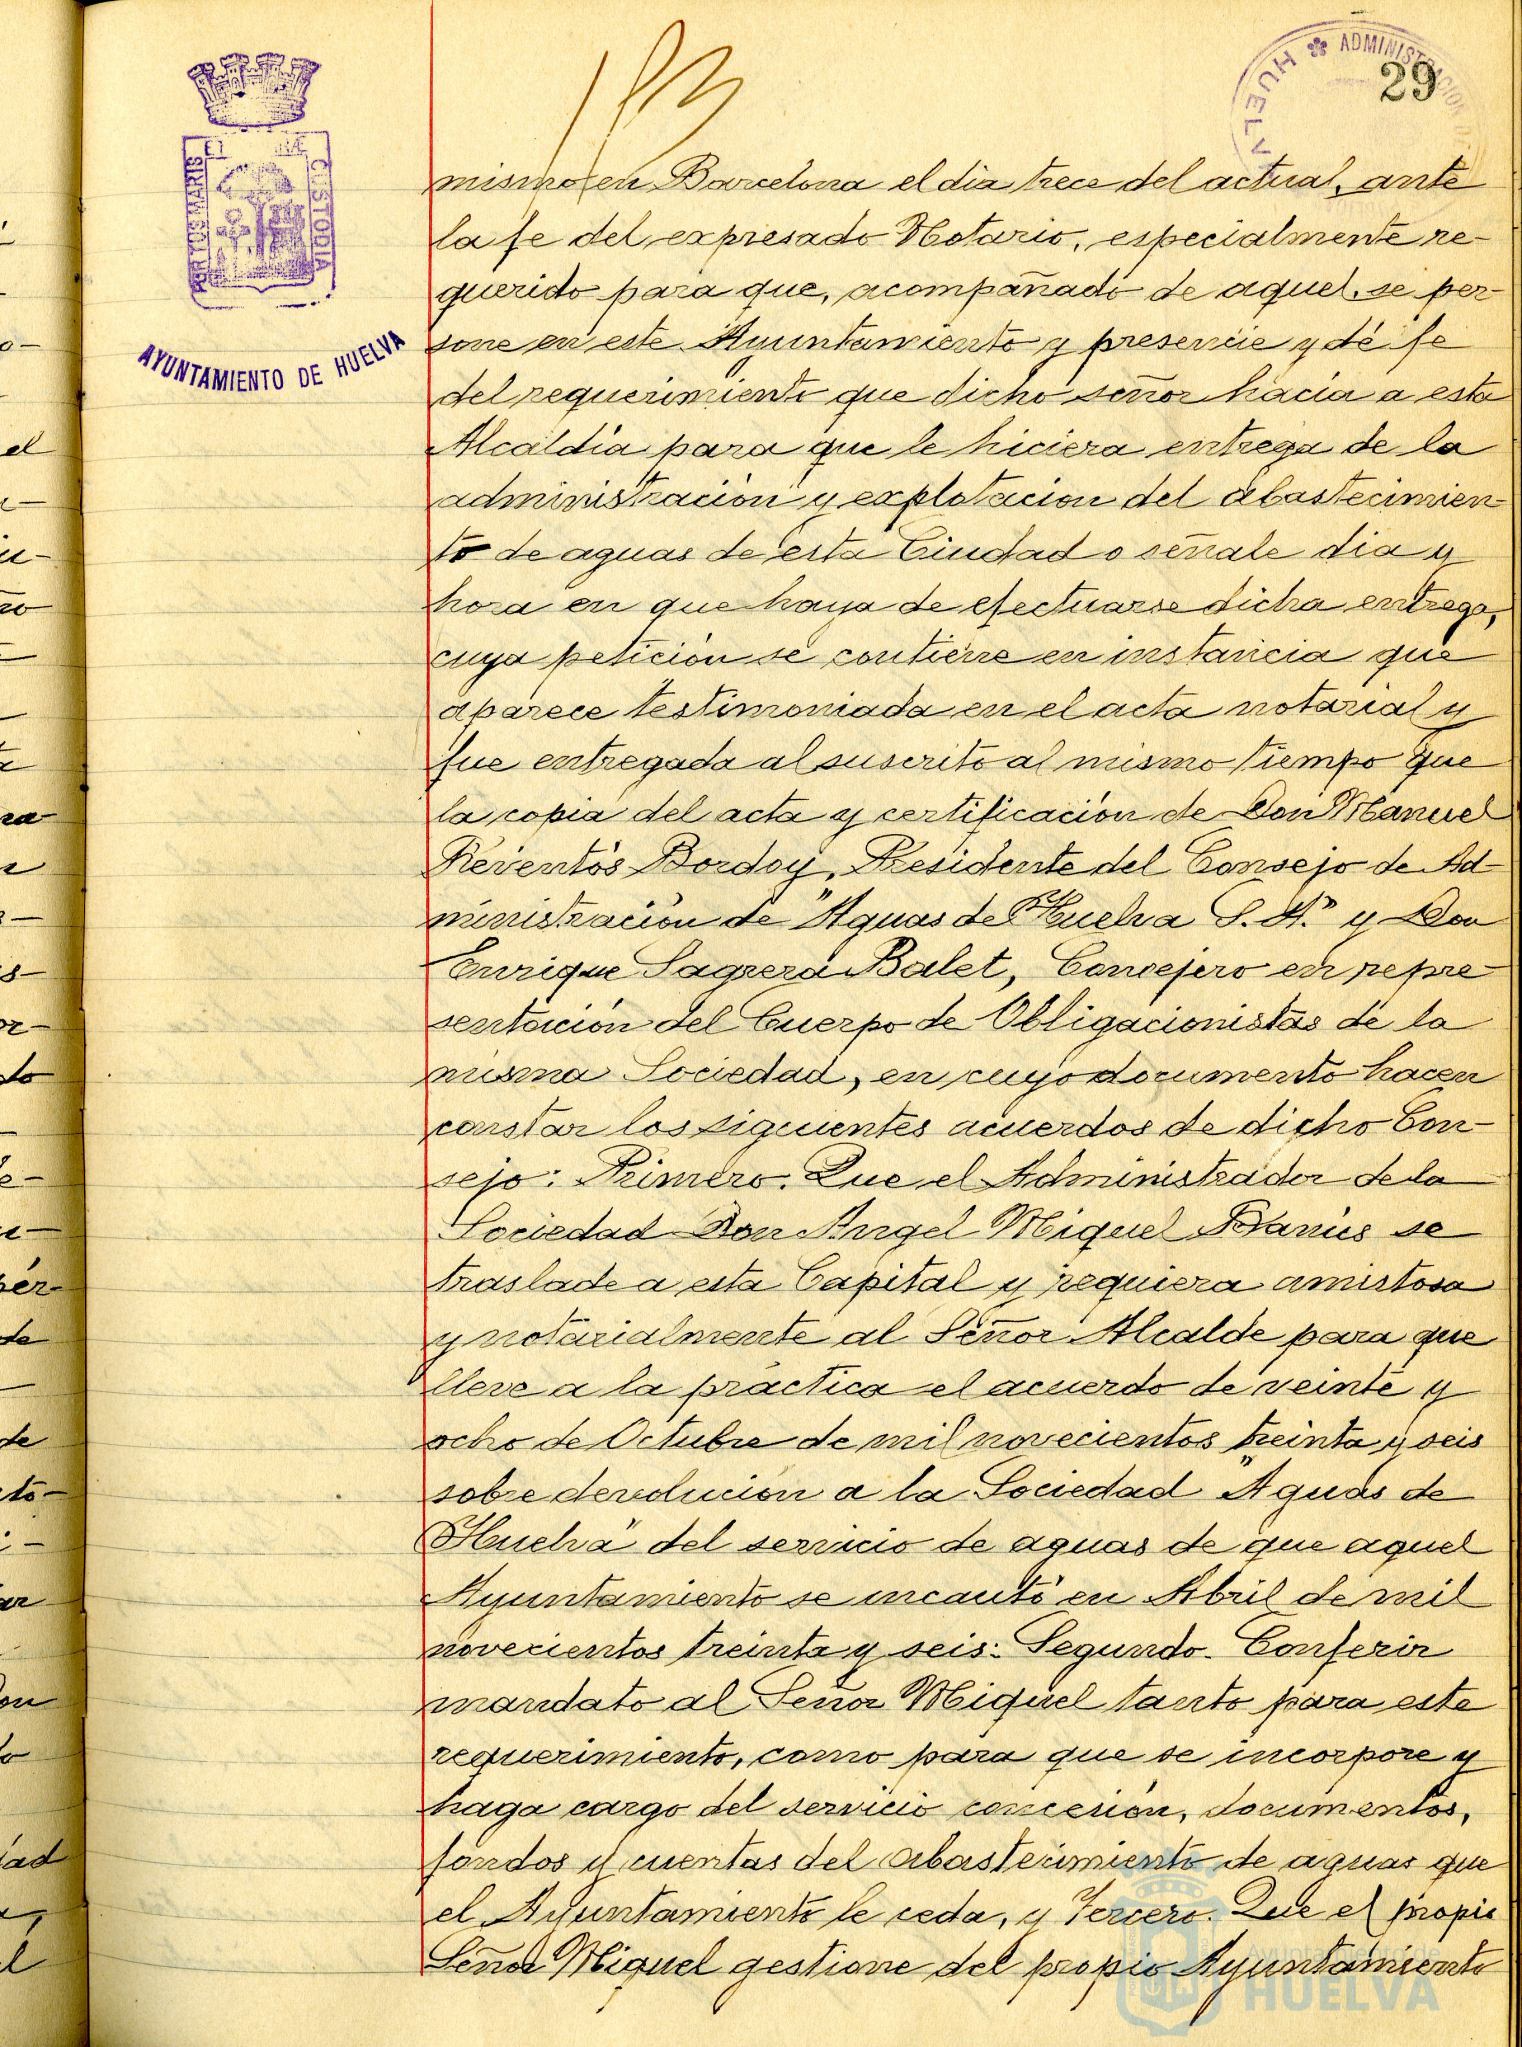 ADMINISTRACION
HUELVA
29
PORTUS MARIS ET CUSTODIA
AYUNTAMIENTO DE HUELVA
mismo en Barcelona el dia trece del actual, ante
la fe del expresado Notario, especialmente re-
querido para que, acompañado de aquel, se per-
sone en este Ayuntamiento y presencie y dé fe
del requerimiento que dicho señor hacía a esta
Alcaldía para que le hiciera entrega de la
administración y explotacion del abastecimien-
to de aguas de esta Ciudad o señale dia y
hora en que haya de efectuarse dicha entrega,
cuya petición se contiene en instancia que
aparece testimoniada en el acta notarial y
fue entregada al suscrito al mismo tiempo que
la copia del acta y certificación de Don Manuel
Reventós Bordoy, Presidente del Consejo de Ad-
ministración de "Aguas de Huelva S.A." y Don
Enrique Sagrera Balet, Consejero en repre-
sentación del Cuerpo de Obligacionistas de la
misma Sociedad, en cuyo documento hacen
constar los siguientes acuerdos de dicho Con-
sejo: Primero. Que el Administrador de la
Sociedad Don Angel Miquel Banús se
traslade a esta Capital y requiera amistosa
y notarialmente al Señor Alcalde para que
lleve a la práctica el acuerdo de veinte y
ocho de Octubre de mil novecientos treinta y seis
sobre devolución a la Sociedad "Aguas de
Huelva" del servicio de aguas de que aquel
Ayuntamiento se incautó en Abril de mil
novecientos treinta y seis: Segundo. Conferir
mandato al Señor Miquel tanto para este
requerimiento, como para que se incorpore y
haga cargo del servicio concesión, documentos,
fondos y cuentas del abastecimiento de aguas que
el Ayuntamiento le ceda, y Tercero. Que el propio
Señor Miquel gestione del propio Ayuntamiento
Ayuntamiento de
HUELVA